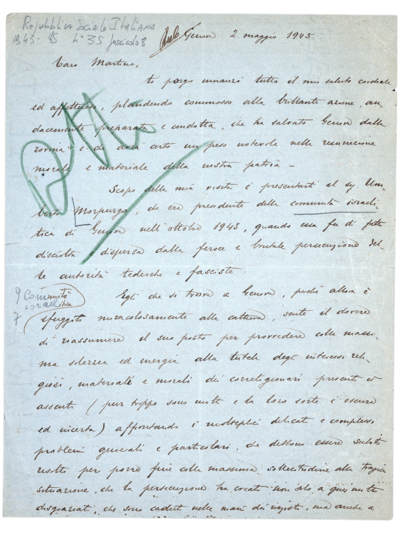 Repubblica Sociale Italiana
1943-45 b. 35 fascicolo 8
Genova 2 maggio 1945
Caro Martino,
ti porgo innanzi tutto il mio saluto cordiale
ed affettuoso, plaudendo commosso alla brillante azione, au
dacemente preparata e condotta, che ha salvato Genova dalla
rovina e che avrà certo un peso notevole nella
morale e materiale della nostra patria -
Scopo della mia visita è presentarti il sig. Um
berto Morpurgo, che era presidente della comunità israeli
tica di Genova nell'ottobre 1943, quando essa fu di fatto
disciolta e dispersa dalla feroce e brutale persecuzione del
le autorità tedesche e fasciste
Comunità
israelitica
Egli che si trova a Genova, perché allora è
sfuggito miracolosamente alla cattura, sente il dovere
di riassumere il suo posto per provvedere colla massi
ma solerzia ed energia alla tutela degli interessi reli
giosi, materiali e morali dei correligionari presenti ed
assenti (purtroppo sono molti e la loro sorte è oscura
ed incerta) affrontando i molteplici delicati e complessi
problemi generali e particolari, che debbono essere subito
risolti per porre fine colla massima sollecitudine alla tragica
situazione, che la persecuzione ha creato non solo a quei molti
disgraziati, che sono caduti nelle mani dei nazisti, ma anche a